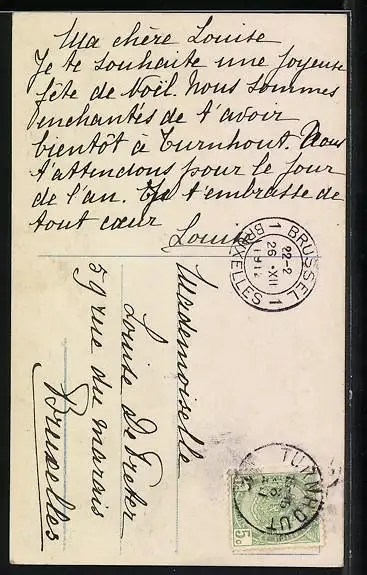 Ma chère Louise
Je te souhaite une joyeuse
fête de Noël. Nous sommes
enchantés de t'avoir
bientôt à Turnhout. Nous
t'attendions pour le jour
de l'an. t'embrasse de
tout cœur
Louise
BRUSSEL 1
22-2
26 XII
191
BRUXELLES 1
Mademoiselle
Louise De Preter
59 rue du marais
Bruxelles
TURNHOUT
5c